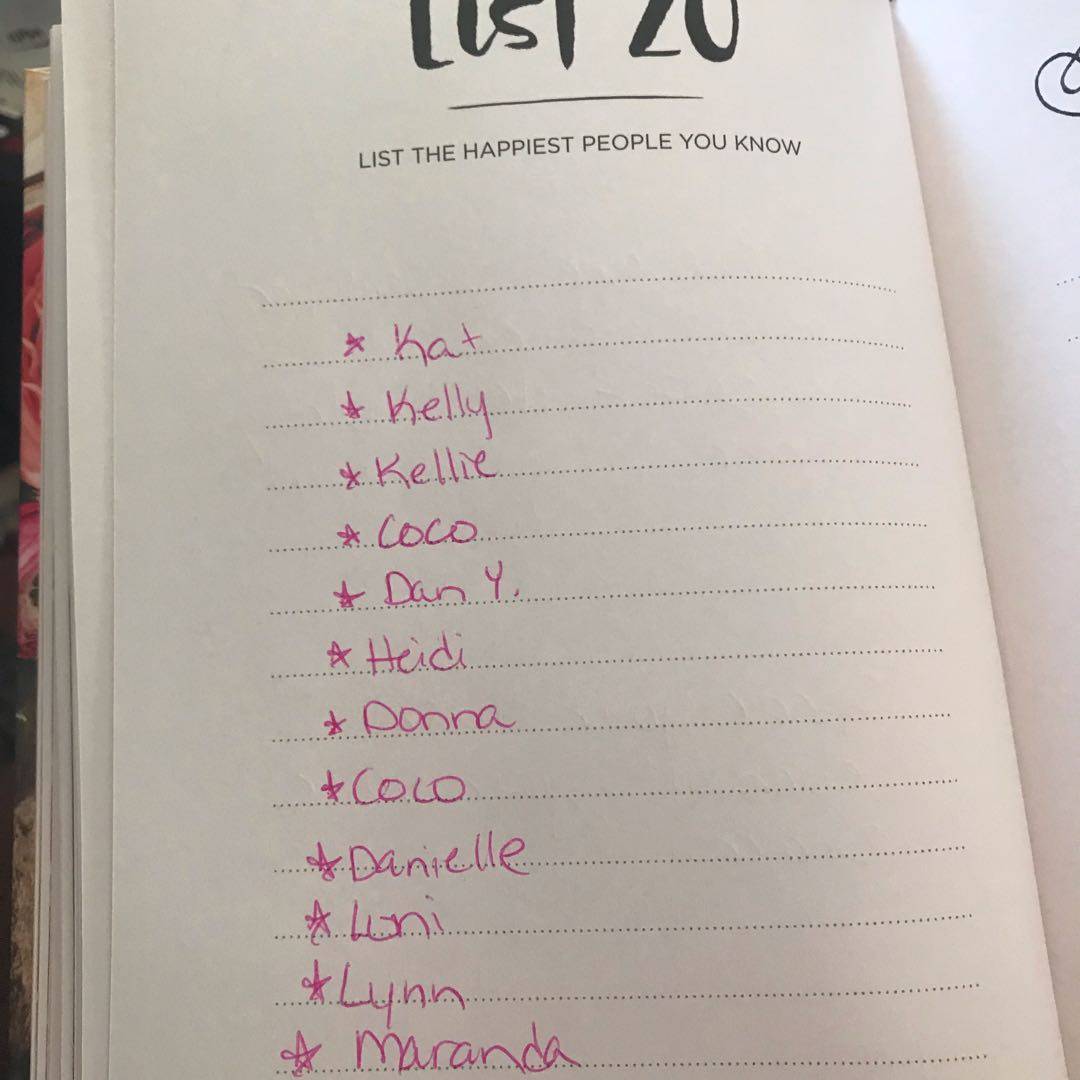 List 20
LIST THE HAPPIEST PEOPLE YOU KNOW
* Kat
* Kelly
* Kellie
* Coco
* Dan Y.
* Heidi
* Donna
* Coco
* Danielle
* Lynn
* Maranda